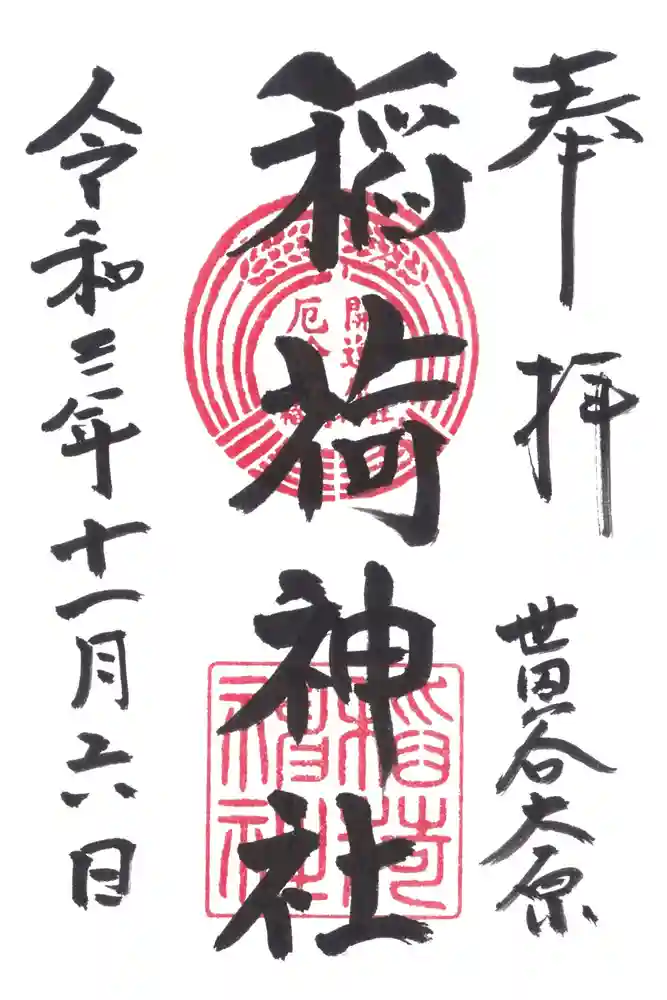 奉拝
世田谷大原
開運
厄
稲荷神社
稲荷神社
令和三年十一月六日